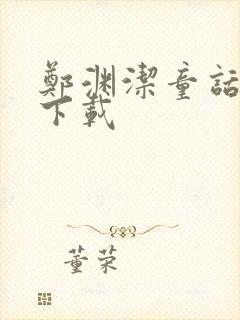 鄭渊潔童話
下載
董荣